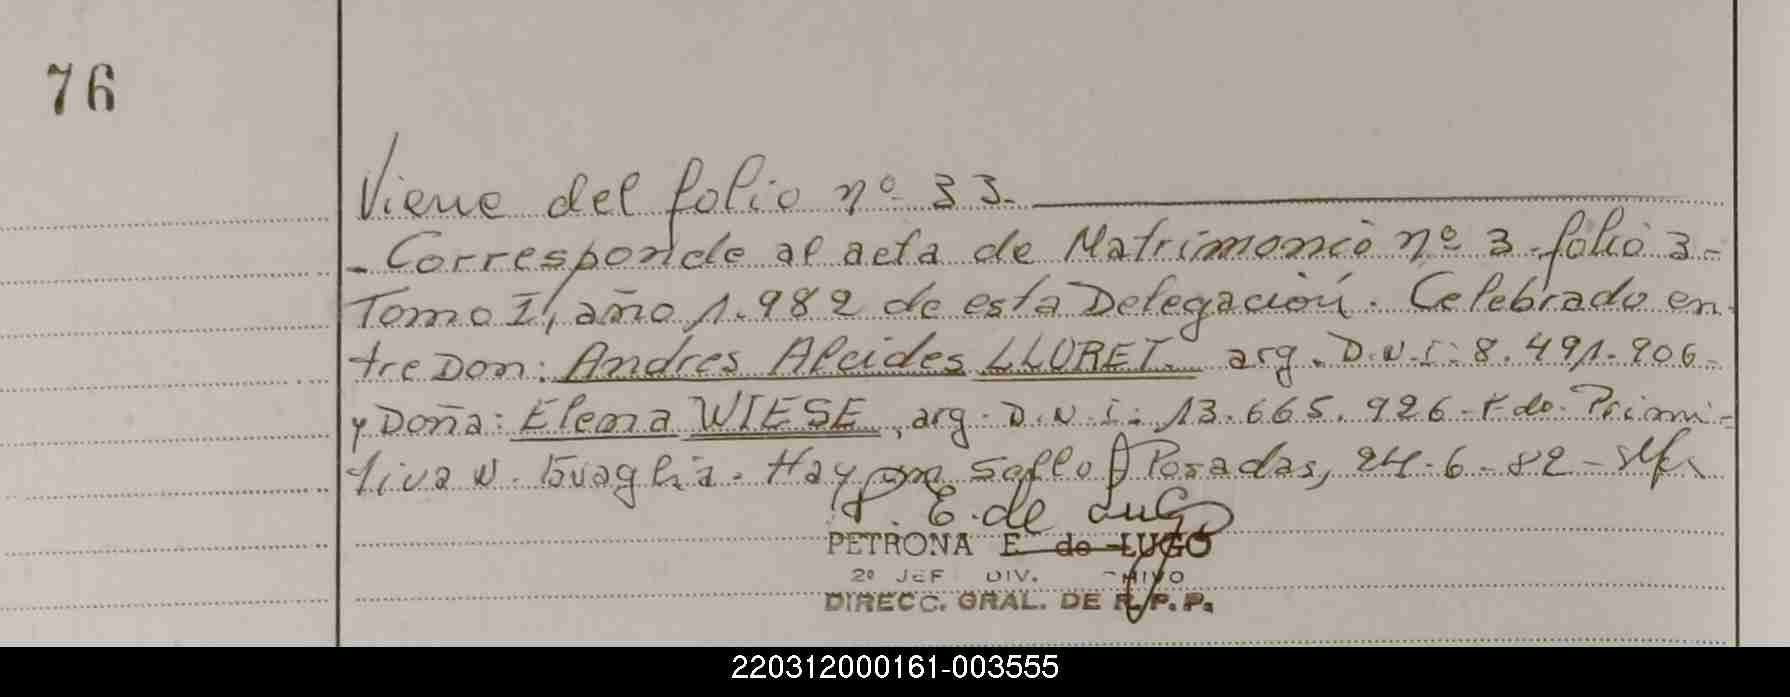 76
Viene del folio nº 33.
- Corresponde al acta de Matrimonio nº 3 folio 3-
Tomo I, año 1.982 de esta Delegación. Celebrado en-
tre Don: Andres Alcides LLORET. arg. D.N.I: 8.491.906-
y Doña: Elena WIESE, arg. D.N.I: 13.665.926-Fdo: Primi-
tiva N. Hay un Sello Posadas, 24-6-82-
P. E. de Lugo
PETRONA E. de LUGO
2º JEF DIV.
DIRECC. GRAL. DE R.P.P.
220312000161-003555